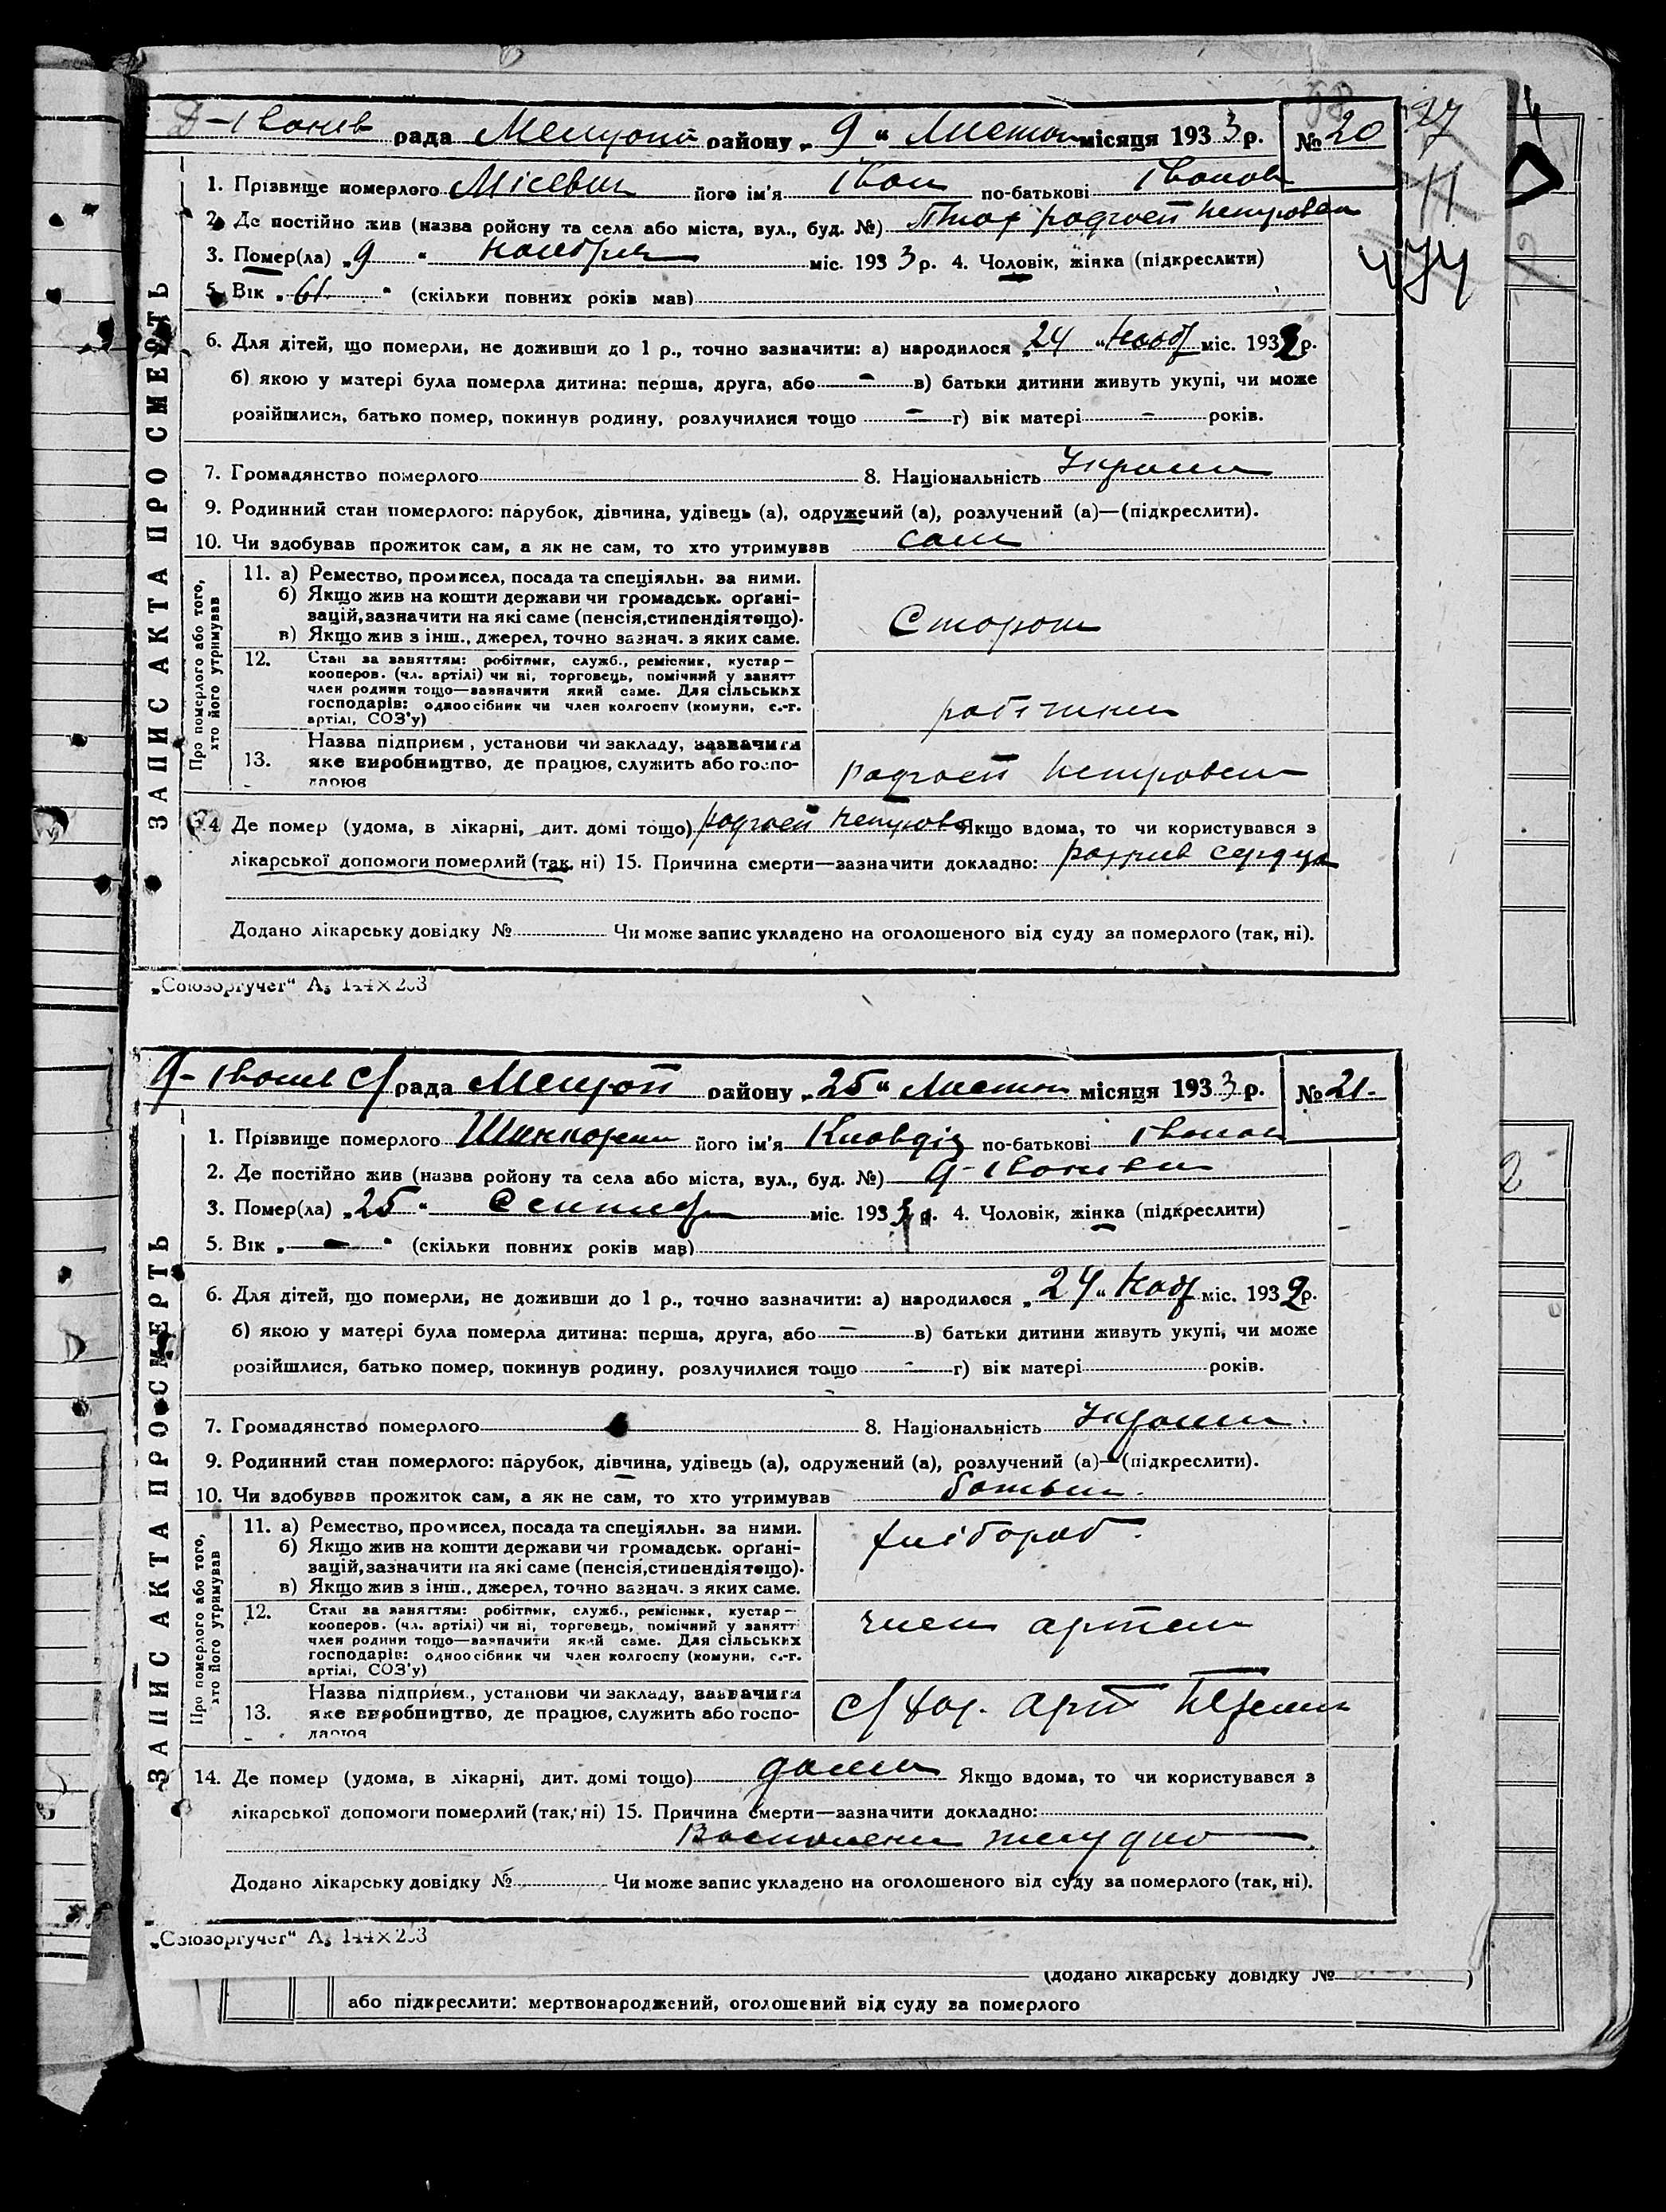 Д-Іванів рада Мелітоп району „9“ Листоп місяця 1933 р. № 20
98
27
11
474
1. Прізвище померлого Місевич його ім'я Іван по-батькові Іванов
2. Де постійно жив (назва району та села або міста, вул., буд. №) радгосп
3. Помер(ла) „9“ ноября міс. 1933 р. 4. Чоловік, жінка (підкреслити)
5. Вік „61“ (скільки повних років мав)
6. Для дітей, що померли, не доживши до 1 р., точно зазначити: а) народилося „24“ нояб міс. 1932 р.
б) якою у матері була померла дитина: перша, друга, або — в) батьки дитини живуть укупі, чи може
розійшлися, батько помер, покинув родину, розлучилися тощо — г) вік матері — років.
7. Громадянство померлого 8. Національність Україн
9. Родинний стан померлого: парубок, дівчина, удівець (а), одружений (а), розлучений (а)—(підкреслити).
10. Чи здобував прожиток сам, а як не сам, то хто утримував сам
ЗАПИС АКТА ПРО СМЕРТЬ
Про померлого або того,
хто його утримував
11. а) Ремество, промисел, посада та спеціяльн. за ними.
б) Якщо жив на кошти держави чи громадськ. орґані-
зацій, зазначити на які саме (пенсія, стипендія тощо).
в) Якщо жив з інш., джерел, точно зазнач. з яких саме.
Сторож
12. Стан за заняттям: робітник, служб., ремісник, кустар—
кооперов. (чл. артілі) чи ні, торговець, помічний у занятт
член родини тощо—зазначити який саме. Для сільських
господарів: одноосібник чи член колгоспу (комуни, с.-г.
артілі, СОЗ'у)
робітник
13. Назва підприєм., установи чи закладу, зазначити
яке виробництво, де працює, служить або госпо-
дарює
радгосп
14. Де помер (удома, в лікарні, дит. домі тощо) радгосп Якщо вдома, то чи користувався з
лікарської допомоги померлий (так, ні) 15. Причина смерти—зазначити докладно: розрив сердца
Додано лікарську довідку № Чи може запис укладено на оголошеного від суду за померлого (так, ні).
„Союзоргучет“ А₅ 144×203
Д-Іванів С/рада Мелітоп району „25“ Листоп місяця 1933 р. № 21-
1. Прізвище померлого його ім'я Клавдія по-батькові Іванов
2. Де постійно жив (назва району та села або міста, вул., буд. №) Д-Іванівка
3. Помер(ла) „25“ Сентябр міс. 1933 р. 4. Чоловік, жінка (підкреслити)
5. Вік „—“ (скільки повних років мав)
6. Для дітей, що померли, не доживши до 1 р., точно зазначити: а) народилося „24“ нояб міс. 1932 р.
б) якою у матері була померла дитина: перша, друга, або — в) батьки дитини живуть укупі, чи може
розійшлися, батько помер, покинув родину, розлучилися тощо — г) вік матері років.
7. Громадянство померлого 8. Національність Україн.
9. Родинний стан померлого: парубок, дівчина, удівець (а), одружений (а), розлучений (а)—(підкреслити).
10. Чи здобував прожиток сам, а як не сам, то хто утримував батьки.
ЗАПИС АКТА ПРО СМЕРТЬ
Про померлого або того,
хто його утримував
11. а) Ремество, промисел, посада та спеціяльн. за ними.
б) Якщо жив на кошти держави чи громадськ. орґані-
зацій, зазначити на які саме (пенсія, стипендія тощо).
в) Якщо жив з інш., джерел, точно зазнач. з яких саме.
хлібороб.
12. Стан за заняттям: робітник, служб., ремісник, кустар—
кооперов. (чл. артілі) чи ні, торговець, помічний у занятт
член родини тощо—зазначити який саме. Для сільських
господарів: одноосібник чи член колгоспу (комуни, с.-г.
артілі, СОЗ'у)
член артели
13. Назва підприєм., установи чи закладу, зазначити
яке виробництво, де працює, служить або госпо-
дарює
с/хоз. арт
14. Де помер (удома, в лікарні, дит. домі тощо) дома Якщо вдома, то чи користувався з
лікарської допомоги померлий (так, ні) 15. Причина смерти—зазначити докладно:
Воспалени желудко
Додано лікарську довідку № Чи може запис укладено на оголошеного від суду за померлого (так, ні).
„Союзоргучет“ А₅ 144×203
(додано лікарську довідку № )
або підкреслити: мертвонароджений, оголошений від суду за померлого